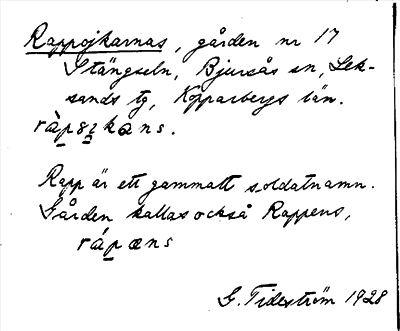 Rappojkarnas, gården nr 17
Stängseln, Bjursås sn, Lek-
sands tg, Kopparbergs län.
Rapp är ett gammalt soldatnamn.
Gården kallas också Rappens,
G. Tideström 1928